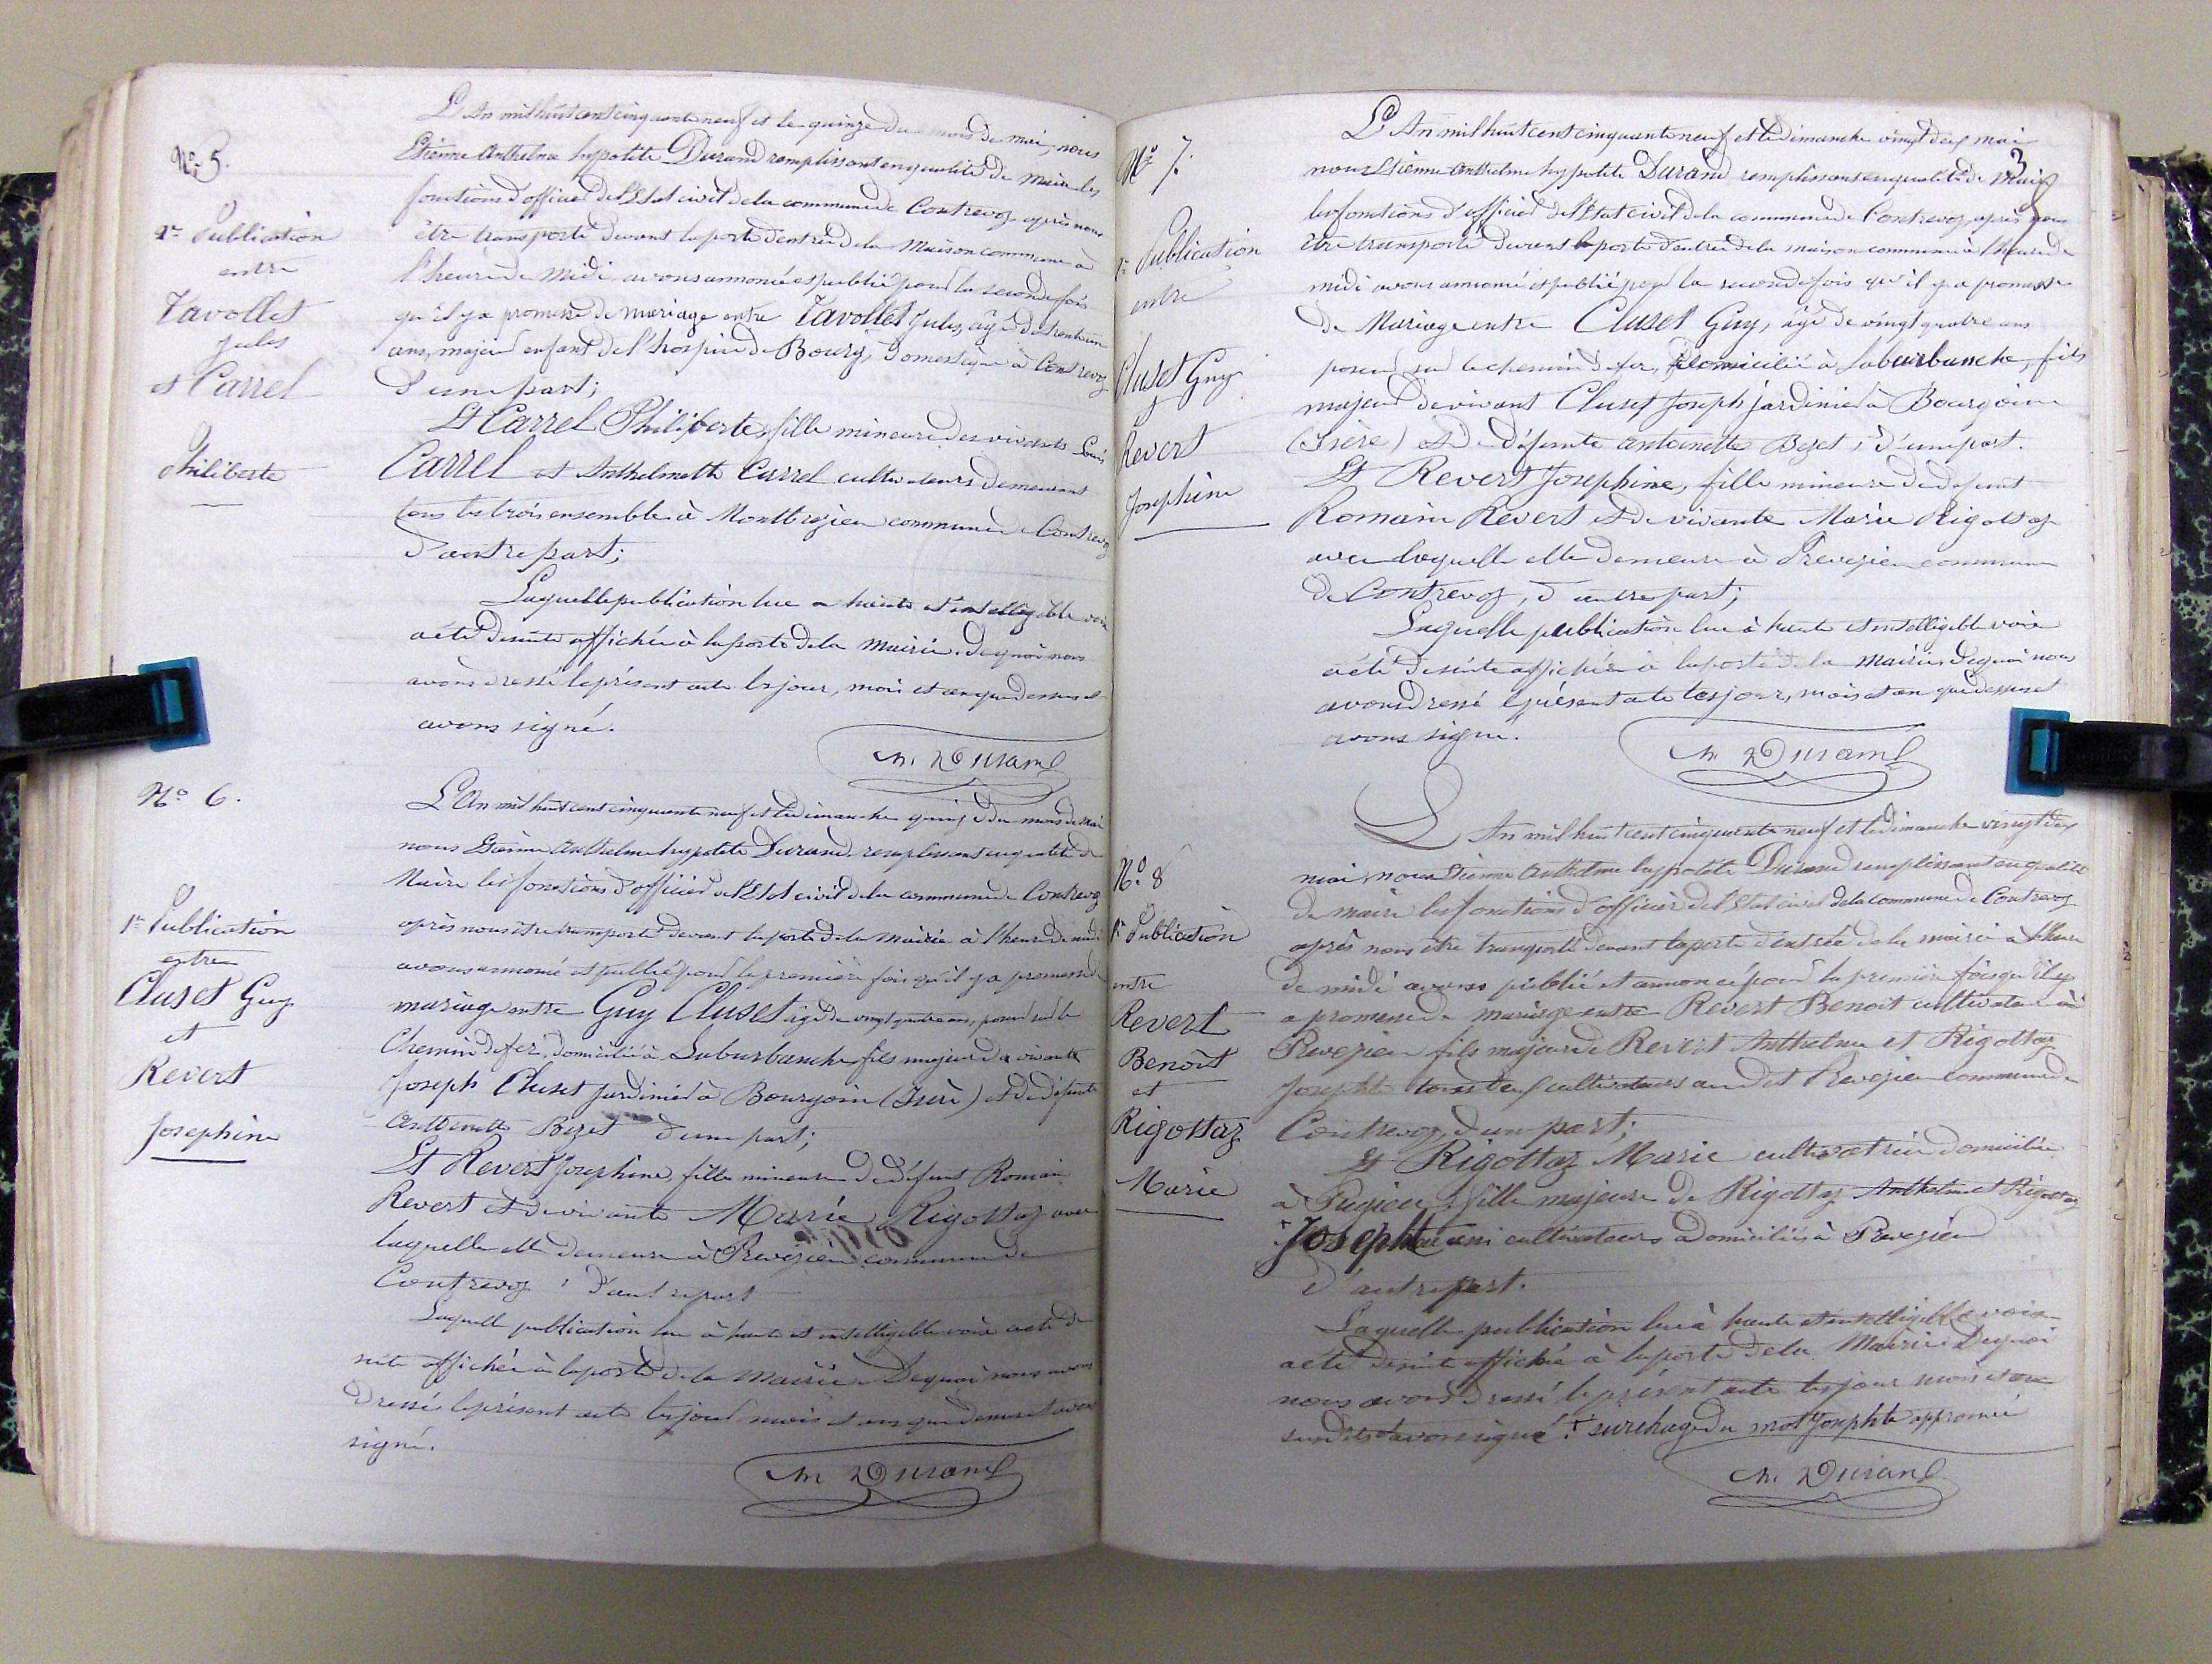 N° 5.
1re Publication
entre
Tavollet
Jules
et Carrel
Philiberte
L'An mil huit cent cinquante neuf et le quinze du mois de mai, nous
Etienne Anthelme hyppolite Durand remplissant en qualité de Maire les
fonctions d'officier de l'Etat civil de la commune de Contrevoz après nous
être transporté devant la porte d'entrée de la Maison commune à
l'heure de Midi avons annoncé et publié pour la seconde fois
qu'il y a promesse de mariage entre Tavollet Jules, âgé de trente un
ans, majeur enfant de l'hospice de Bourg, domestique à Contrevoz
d'une part;
Et Carrel Philiberte, fille mineure des vivants Louis
Carrel et Anthelmette Carrel cultivateurs demeurant
tous les trois ensemble à Montbrezieu commune de Contrevoz
d'autre part;
Laquelle publication lue a haute et intelligible voix
a été de suite affichée à la porte de la Mairie. de quoi nous
avons dressé le présent acte les jour, mois et an que dessus et
avons signé.
M. Durand
N° 6.
1re Publication
entre
Cluset Guy
et
Revert
Josephine
L'An mil huit cent cinquante neuf et le dimanche quinze du mois de Mai
nous Etienne Anthelme hyppolite Durand remplissant en qualité de
Maire les fonctions d'officier de l'Etat civil de la commune de Contrevoz
après nous être transporté devant la porte de la Mairie à l'heure de midi
avons annoncé et publié pour la première fois qu'il y a promesse de
mariage entre Guy Cluset âgé de vingt quatre ans, poseur sur le
Chemin de fer, domicilié à Laburbanche fils majeur de vivant
Joseph Cluset jardinier à Bourgoin (Isère) et de défunte
Antoinette Bizet d'une part;
Et Revert Josephine, fille mineure de défunt Romain
Revert et de vivante Marie Rigottaz avec
laquelle elle demeure à Prevezieu commune de
Contrevoz, d'autre part
Laquelle publication lue à haute et intelligible voix a été de
suite affichée à la porte de la Mairie. De quoi nous avons
dressé le présent acte les jour mois et an que dessus et avons
signé.
M Durand
3
N° 7.
1re Publication
entre
Cluset Guy
et
Revert
Josephine
L'An mil huit cent cinquante neuf et le dimanche vingt deux mai
nous Etienne Anthelme hyppolite Durand remplissant en qualité de Maire
les fonctions d'officier de l'Etat civil de la commune de Contrevoz, après nous
être transporté devant la porte d'entrée de la maison commune à l'heure de
midi avons annoncé et publié pour la seconde fois qu'il y a promesse
de Mariage entre Cluset Guy, âgé de vingt quatre ans
poseur sur le chemin de fer, domicilié à Laburbanche, fils
majeur de vivant Cluset Joseph jardinier à Bourgoin
(Isère) et de défunte Antoinette Bizet, d'une part.
Et Revert Josephine, fille mineure de défunt
Romain Revert et de vivante Marie Rigottaz
avec laquelle elle demeure à Prevezieu commune
de Contrevoz, d'autre part;
Laquelle publication lue à haute et intelligible voix
a été de suite affichée à la porte de la Mairie. De quoi nous
avons dressé le présent acte les jour, mois et an que dessus et
avons signé.
M. Durand
N° 8
1re Publication
entre
Revert
Benoît
et
Rigottaz
Marie
L'An mil huit cent cinquante neuf et le dimanche vingt deux
mai, nous Etienne Anthelme hyppolite Durand remplissant en qualité
de maire les fonctions d'officier de l'Etat civil de la commune de Contrevoz
après nous être transporté devant la porte d'entrée de la mairie à l'heure
de midi avons publié et annoncé pour la première fois qu'il y
a promesse de mariage entre Revert Benoit cultivateur à
Prevezieu fils majeur de Revert Anthelme et Rigottaz
Josephte tous deux cultivateurs au dit Prevezieu commune de
Contrevoz, d'une part;
Et Rigottaz Marie cultivatrice domiciliée
à Pugieu, fille majeure de Rigottaz Anthelme et Rigottaz
+ Josephte cultivateurs domiciliés à Prevezieu
d'autre part.
Laquelle publication lue à haute et intelligible voix
a été de suite affichée à la porte de la Mairie. De quoi
nous avons dressé le présent acte les jour mois et an
susdits et avons signé. + surcharge du mot Josephte approuvée
M. Durand